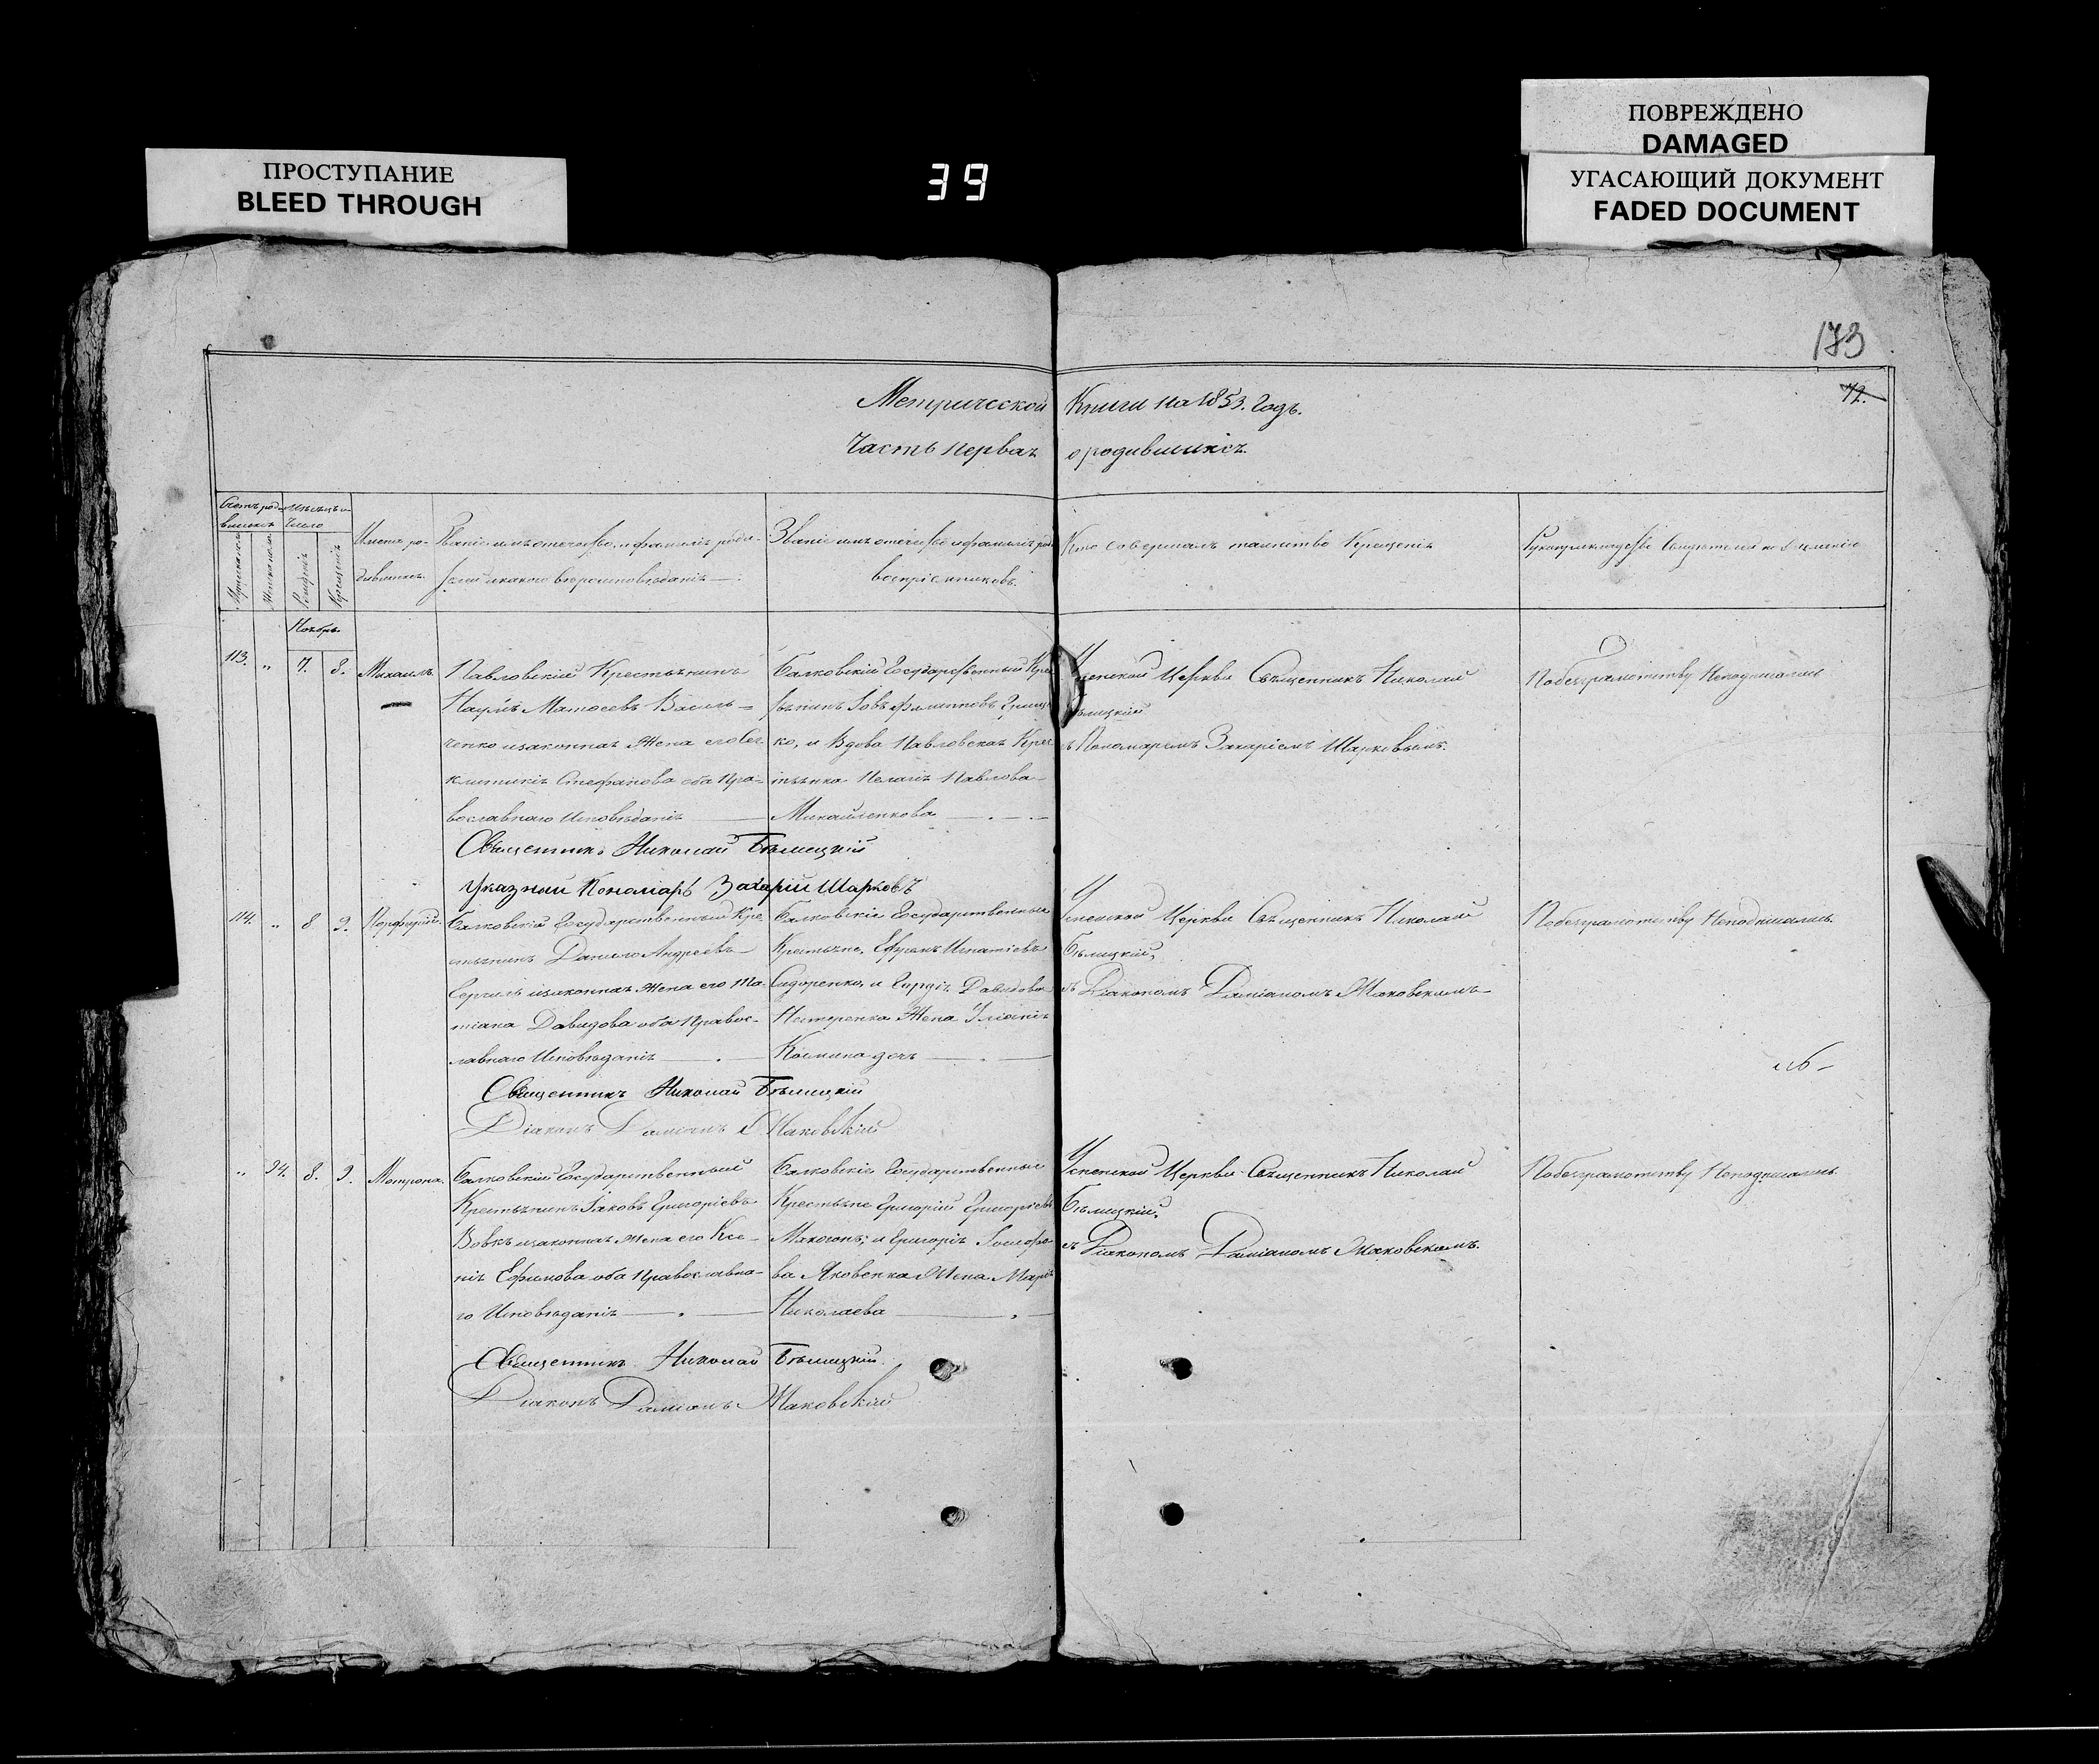 ПРОСТУПАНИЕ
BLEED THROUGH
39
ПОВРЕЖДЕНО
DAMAGED
УГАСАЮЩИЙ ДОКУМЕНТ
FADED DOCUMENT
173
72.
Метрической Книги на 1853. Годъ.
Часть первая о родившихся.
Счетъ роди- Мѣсяцъ и
вшихся Число
Мужескаго Женскаго Рожденія Крещенія
Имена ро-
дившихся.
Званіе имя отечество, и фамилія роди-
телей и какого вѣроисповѣданія
Званіе имя отечество и фамилія
воспріемниковъ.
Кто совершалъ таинство Крещенія
Рукоприкладство Свидѣтелей по желанію
Ноябрь
113. „ 7. 8. Михаилъ.
Павловскій Крестьянинъ
Наумъ Матөеевъ Василь-
ченко и законная Жена его
Стефанова оба Пра-
вославнаго Исповѣданія
Балковскій Государственный Кре
стьянинъ Іовъ Филиповъ
ко, и Вдова Павловская Крес
тьянка Пелагія Павлова
Михайленкова
Успенской Церкви Священникъ Николай
Бѣлицкій
съ Пономаремъ Захаріемъ Шарковымъ.
По безграмотству Неподписались
Священникъ Николай Бѣлицкій
Указный Пономарь Захарій Шарковъ
114. „ 8 9. Порфирій.
Балковскій Государственный Кре
стьянинъ Данило Андреевъ
и законная Жена его Та-
тіана Давидова оба Правос-
лавнаго Исповѣданія
Балковскіе Государственные
Крестьяне, Ефремъ Игнатіевъ
Сидоренко, и Гордія Давидова
Нестеренка Жена
Космина дочь
Успенской Церкви Священникъ Николай
Бѣлицкій,
съ Діакономъ Даміаномъ Маковскимъ
По безграмотству Неподписались.
Священникъ Николай Бѣлицкій
Діаконъ Даміанъ Маковскій
„ 94. 8. 9. Матрона.
Балковскій Государственный
Крестьянинъ Іаковъ Григоріевъ
Вовкъ и законная Жена его Ксе-
нія Ефимова оба Православна-
го Исповѣданія
Балковскіе Государственные
Крестьяне Григорій Григоріевъ
Макогонъ; и Григорія Іосифо
ва Яковенка Жена Марія
Николаева
Успенской Церкви Священникъ Николай
Бѣлицкій,
съ Діакономъ Даміаномъ Маковскимъ.
По безграмотству Неподписались
Священникъ Николай Бѣлицкій
Діаконъ Даміанъ Маковскій